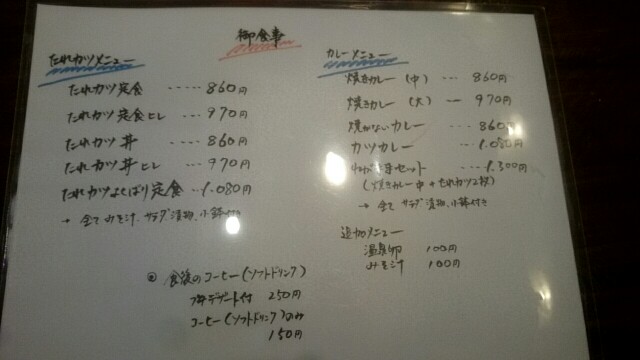 御食事
たれカツメニュー
たれカツ定食 ----- 860円
たれカツ定食ヒレ --- 970円
たれカツ丼 ---- 860円
たれカツ丼ヒレ --- 970円
たれカツよくばり定食 --- 1.080円
→ 全て みそ汁、サラダ 漬物、小鉢付き
カレーメニュー
焼きカレー (中) --- 860円
焼きカレー (大) -- 970円
焼かないカレー ---- 860円
カツカレー ---- 1.080円
わがままセット ---- 1.300円
(焼きカレー中 + たれカツ2枚)
→ 全て サラダ 漬物、小鉢付き
追加メニュー
温泉卵 100円
みそ汁 100円
食後のコーヒー(ソフトドリンク)
プチデザート付 250円
コーヒー(ソフトドリンク)のみ
150円